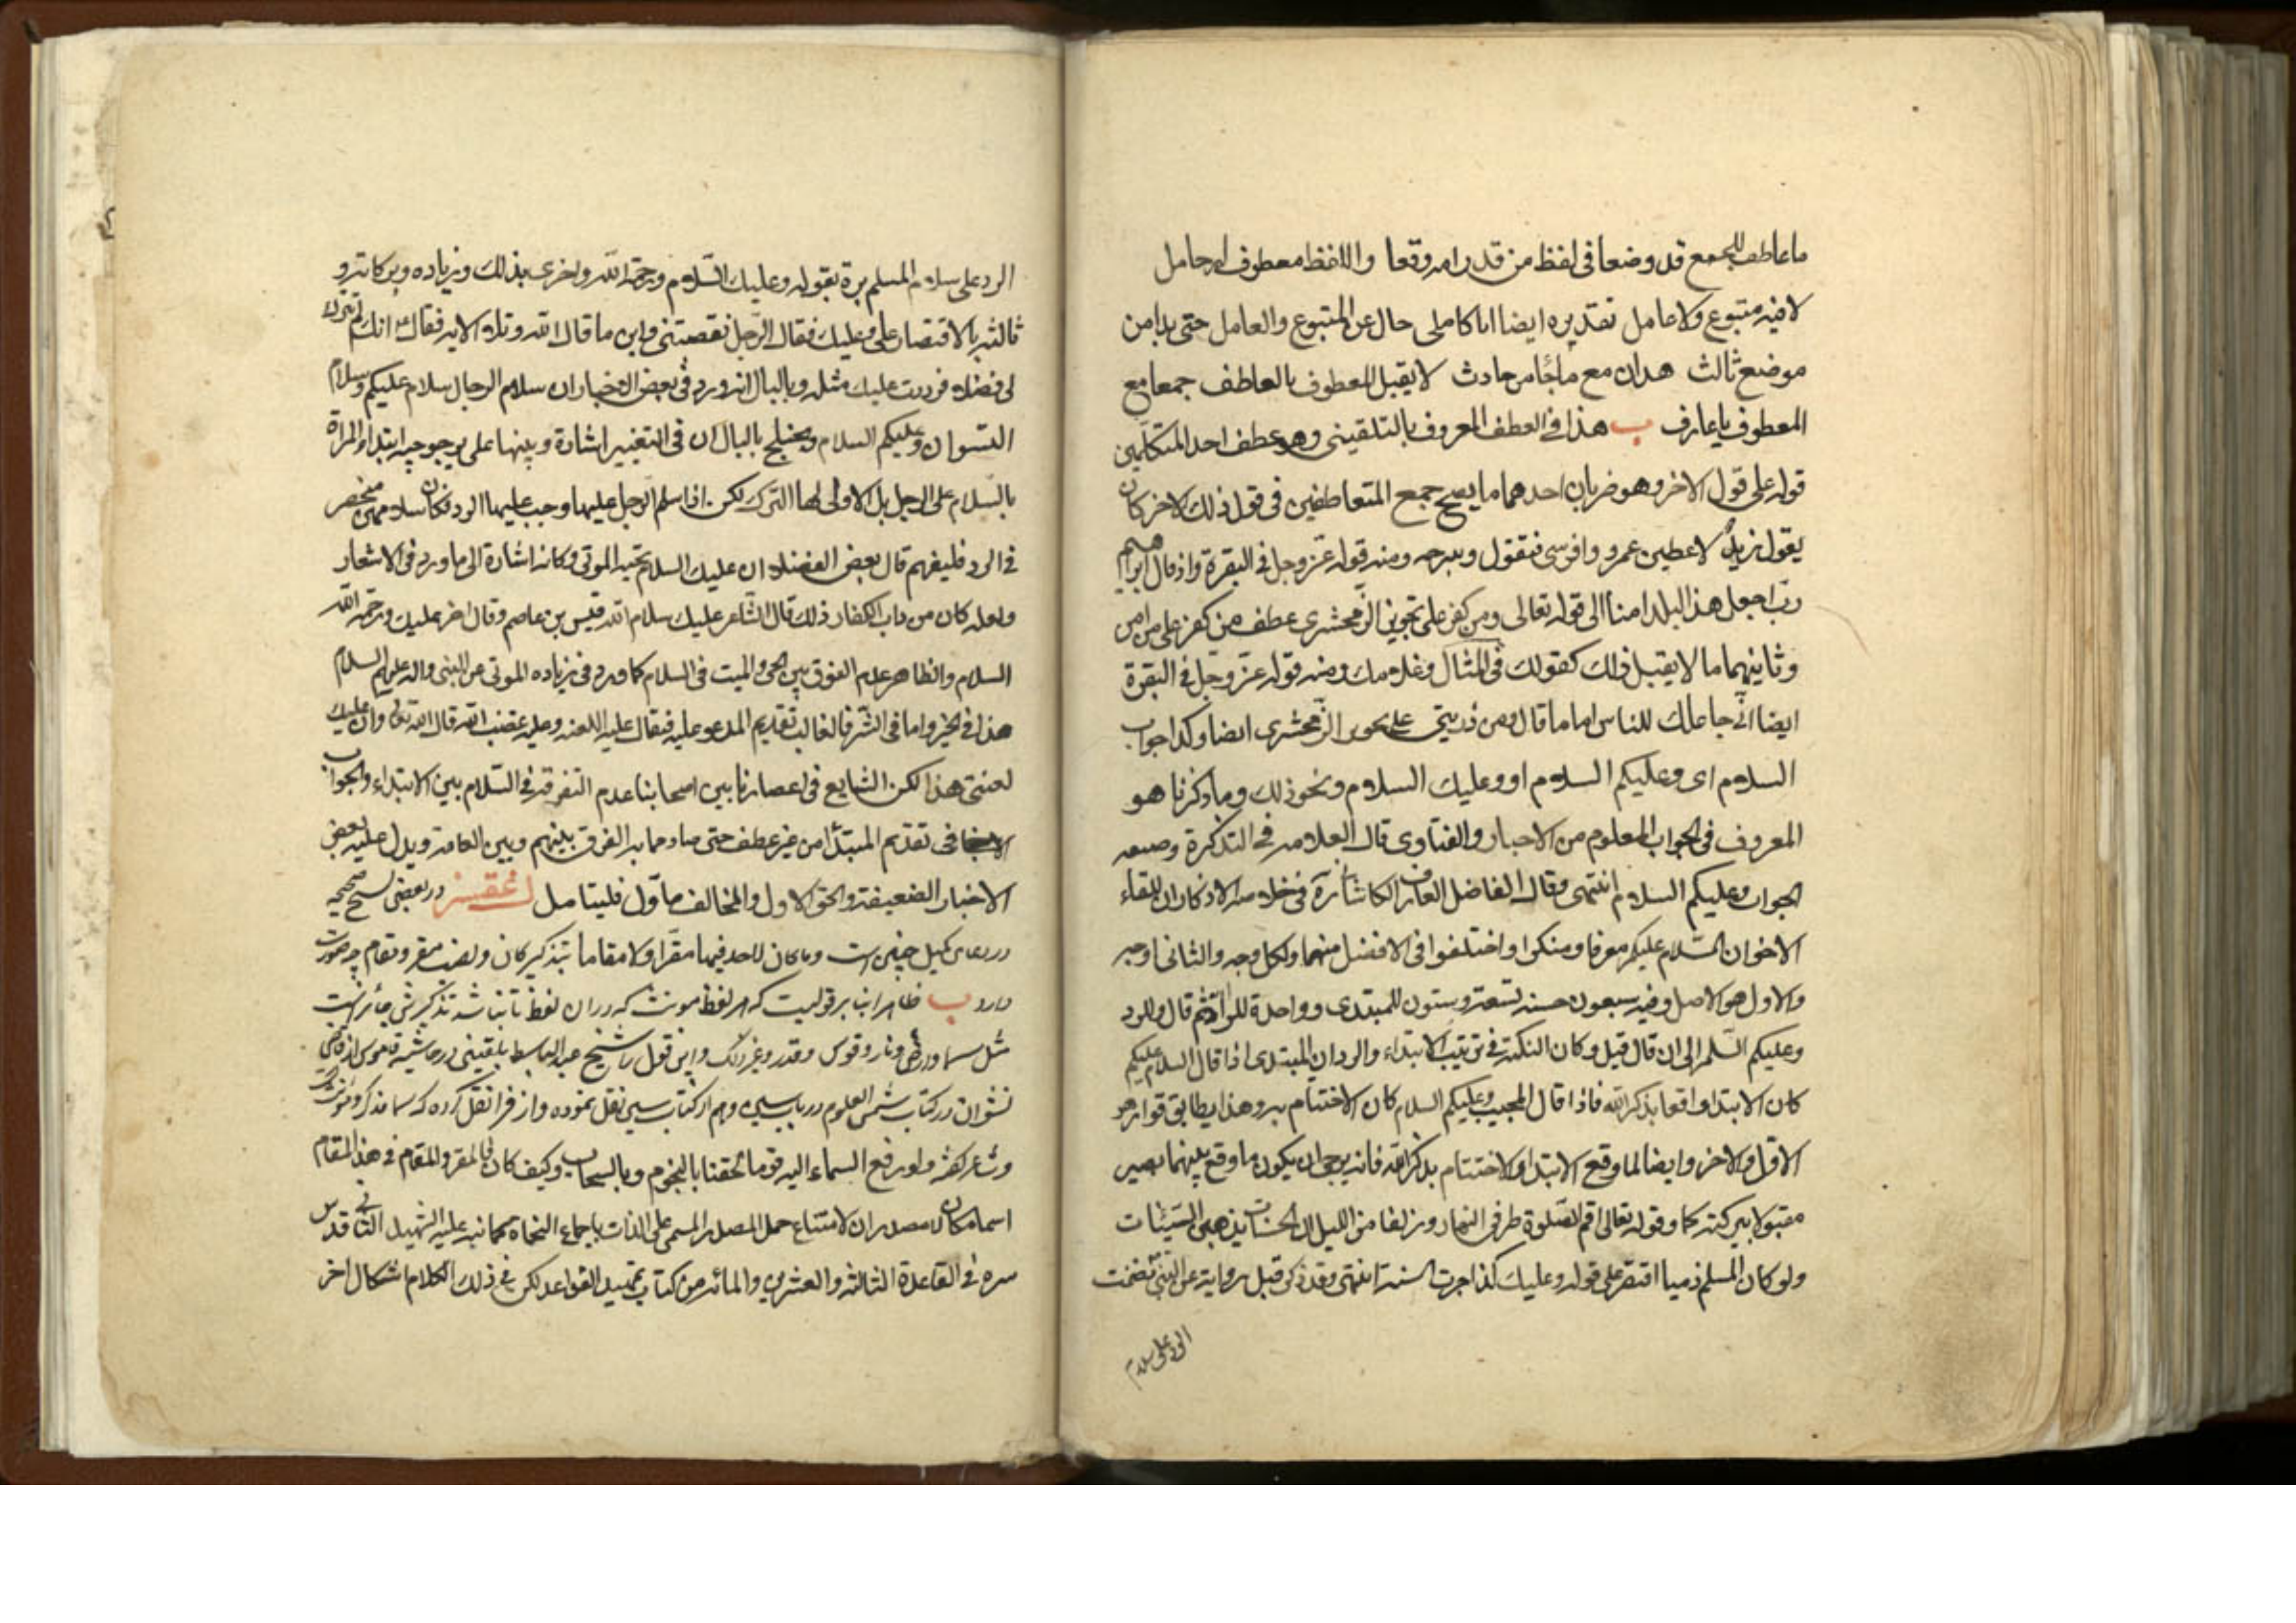 ما عاطف للجمع قد وضعا في لفظ من قدرامه وقعا واللفظ معطوف له حامل
لا فيه متبوع ولا عامل تقديره ايضا اباكاملى حال عن المتبوع والعامل حتى بدا من
موضع ثالث هذان مع ما جأ من حادث لا يقبل المعطوف بالعاطف جمعا مع
المعطوف يا عارف ب هذا في العطف المعروف بالتلقيني وهو عطف احد المتكلمين
قوله على قول الاخر وهو ضربان احدهما ما يصح جمع المتعاطفين في قول ذلك الاخر كان
يقول زيد لاعطين عمرو وافرسي فتقول وسرجه ومنه قوله عز وجل في البقرة واذ قال ابراهيم
رب اجعل هذا البلد امنا الى قوله تعالى ومن كفر على تجويز الزمخشري عطف من كفر على من امن
وثانيهما ما لا يقبل ذلك كقولك في المثال وغلامك ومنه قوله عز وجل في البقرة
ايضا اني جاعلك للناس اماما قال ومن ذريتي على تجويز الزمخشري ايضا وكذا جواب
السلام اى وعليكم السلام او وعليك السلام ونحو ذلك وما ذكرنا هو
المعروف في الجواب المعلوم من الاخبار والفتاوى قال العلامه في التذكرة وصيغه
الجواب وعليكم السلام انتهى وقال الفاضل العارف الكاشاني في خلاصة الاذكار ان للقاء
الاخوان السلام عليكم معرفا ومنكرا واختلفوا في الافضل منهما ولكل وجه والثاني اوجه
والاول هو الاصل وفيه سبعون حسنه تسعة وستون للمبتدى وواحدة للراد ثم قال وللرد
وعليكم السلام الى ان قال قيل وكان النكتة في ترتيب الابتداء والرد ان المبتدى اذا قال السلام عليكم
كان الابتداء واقعا بذكر الله فاذا قال المجيب وعليكم السلام كان الاختتام به وهذا يطابق قوله هو
الاول والاخر وايضا لما وقع الابتداء والاختتام بذكر الله فانه يرجى ان يكون ما وقع بينهما يصير
مقبولا ببركته كما وقوله تعالى اقم الصلوة طرفي النهار وزلفا من الليل ان الحسنات يذهبن السيئات
ولو كان المسلم ذميا اقتصر على قوله وعليك كذا جرت السنة انتهى وقد ذكر قبل رواية عن النبي تضمنت
الرد على سلام
الرد على سلام المسلم مرة بقوله وعليك السلام ورحمة الله واخرى بذلك وزيادة وبركاته و
ثالثه بالاقتصار على وعليك فقال الرجل نقصتني واين ما قال الله وتلا الايه فقال انك لم تترك
لي فضلا فرددت عليك مثله وبالبال انه ورد في بعض الاخبار ان سلام الرجال سلام عليكم وسلام
النسوان وعليكم السلام ويختلج بالبال ان في التغيير اشارة وتنبيها على مرجوحية ابتداء المراة
بالسلام على الرجل بل الاولى لها الترك لكن اذا سلم الرجل عليها وجب عليها الرد فكان سلامهن منحصر
في الرد فليفهم قال بعض الفضلاء ان عليك السلام تحية الموتى وكانه اشارة الى ما ورد في الاشعار
ولعله كان من داب الكفار ذلك قال الشاعر عليك سلام الله قيس بن عاصم وقال اخر عليك ورحمة الله
السلام والظاهر عدم الفرق بين الحي والميت في السلام كما ورد في زياده الموتى عن النبي واله عليهم السلام
هذا في الخير واما في الشر فالغالب تقديم المدعو عليه فيقال عليه اللعنه وعليه غضب الله قال الله تعالى وان عليك
لعنتي هذا لكن الشايع في اعصارنا بين اصحابنا عدم التفرقة في السلام بين الابتداء والجواب
في تقديم المبتدأ من غير عطف حتى صار مما به الفرق بينهم وبين العامة ويدل عليه بعض
الاخبار الضعيفة والحق الاول والمخالف ماول فليتامل در بعضى نسخ صحيحه
در دعاى كميل چنين است وما كان لاحد فيها مقرا ولا مقاما بتذكير كان ونصب مقر ومقام چه صورت
دارد ب ظاهرا بنا بر قوليست كه هر لفظ مونث كه در ان لفظ تا نباشد تذكيرش جائز است
مثل سما وارض ونار وقوس وقدر وغير انك واين قول را شيخ عبد الباسط بلقيني در حاشيه قاموس از قاضي
نشوان در كتاب شمس العلوم در باب سين وهم از كتاب سين نقل نموده واز فرا نقل كرده كه سما مذكر ومونث است
وشاعر گفته ولو رفع السماء اليه قوما لحقنا بالنجوم وبالسحاب وكيف كان فالمقر والمقام في هذا المقام
اسما مكان لا مصدران لامتناع حمل المصدر المسمى على الذات باجماع النحاة كما نبه عليه الشهيد الثاني قدس
سره في القاعدة الثالثة والعشرين والمائه من كتاب تمهيد القواعد لكن في ذلك الكلام اشكال اخر